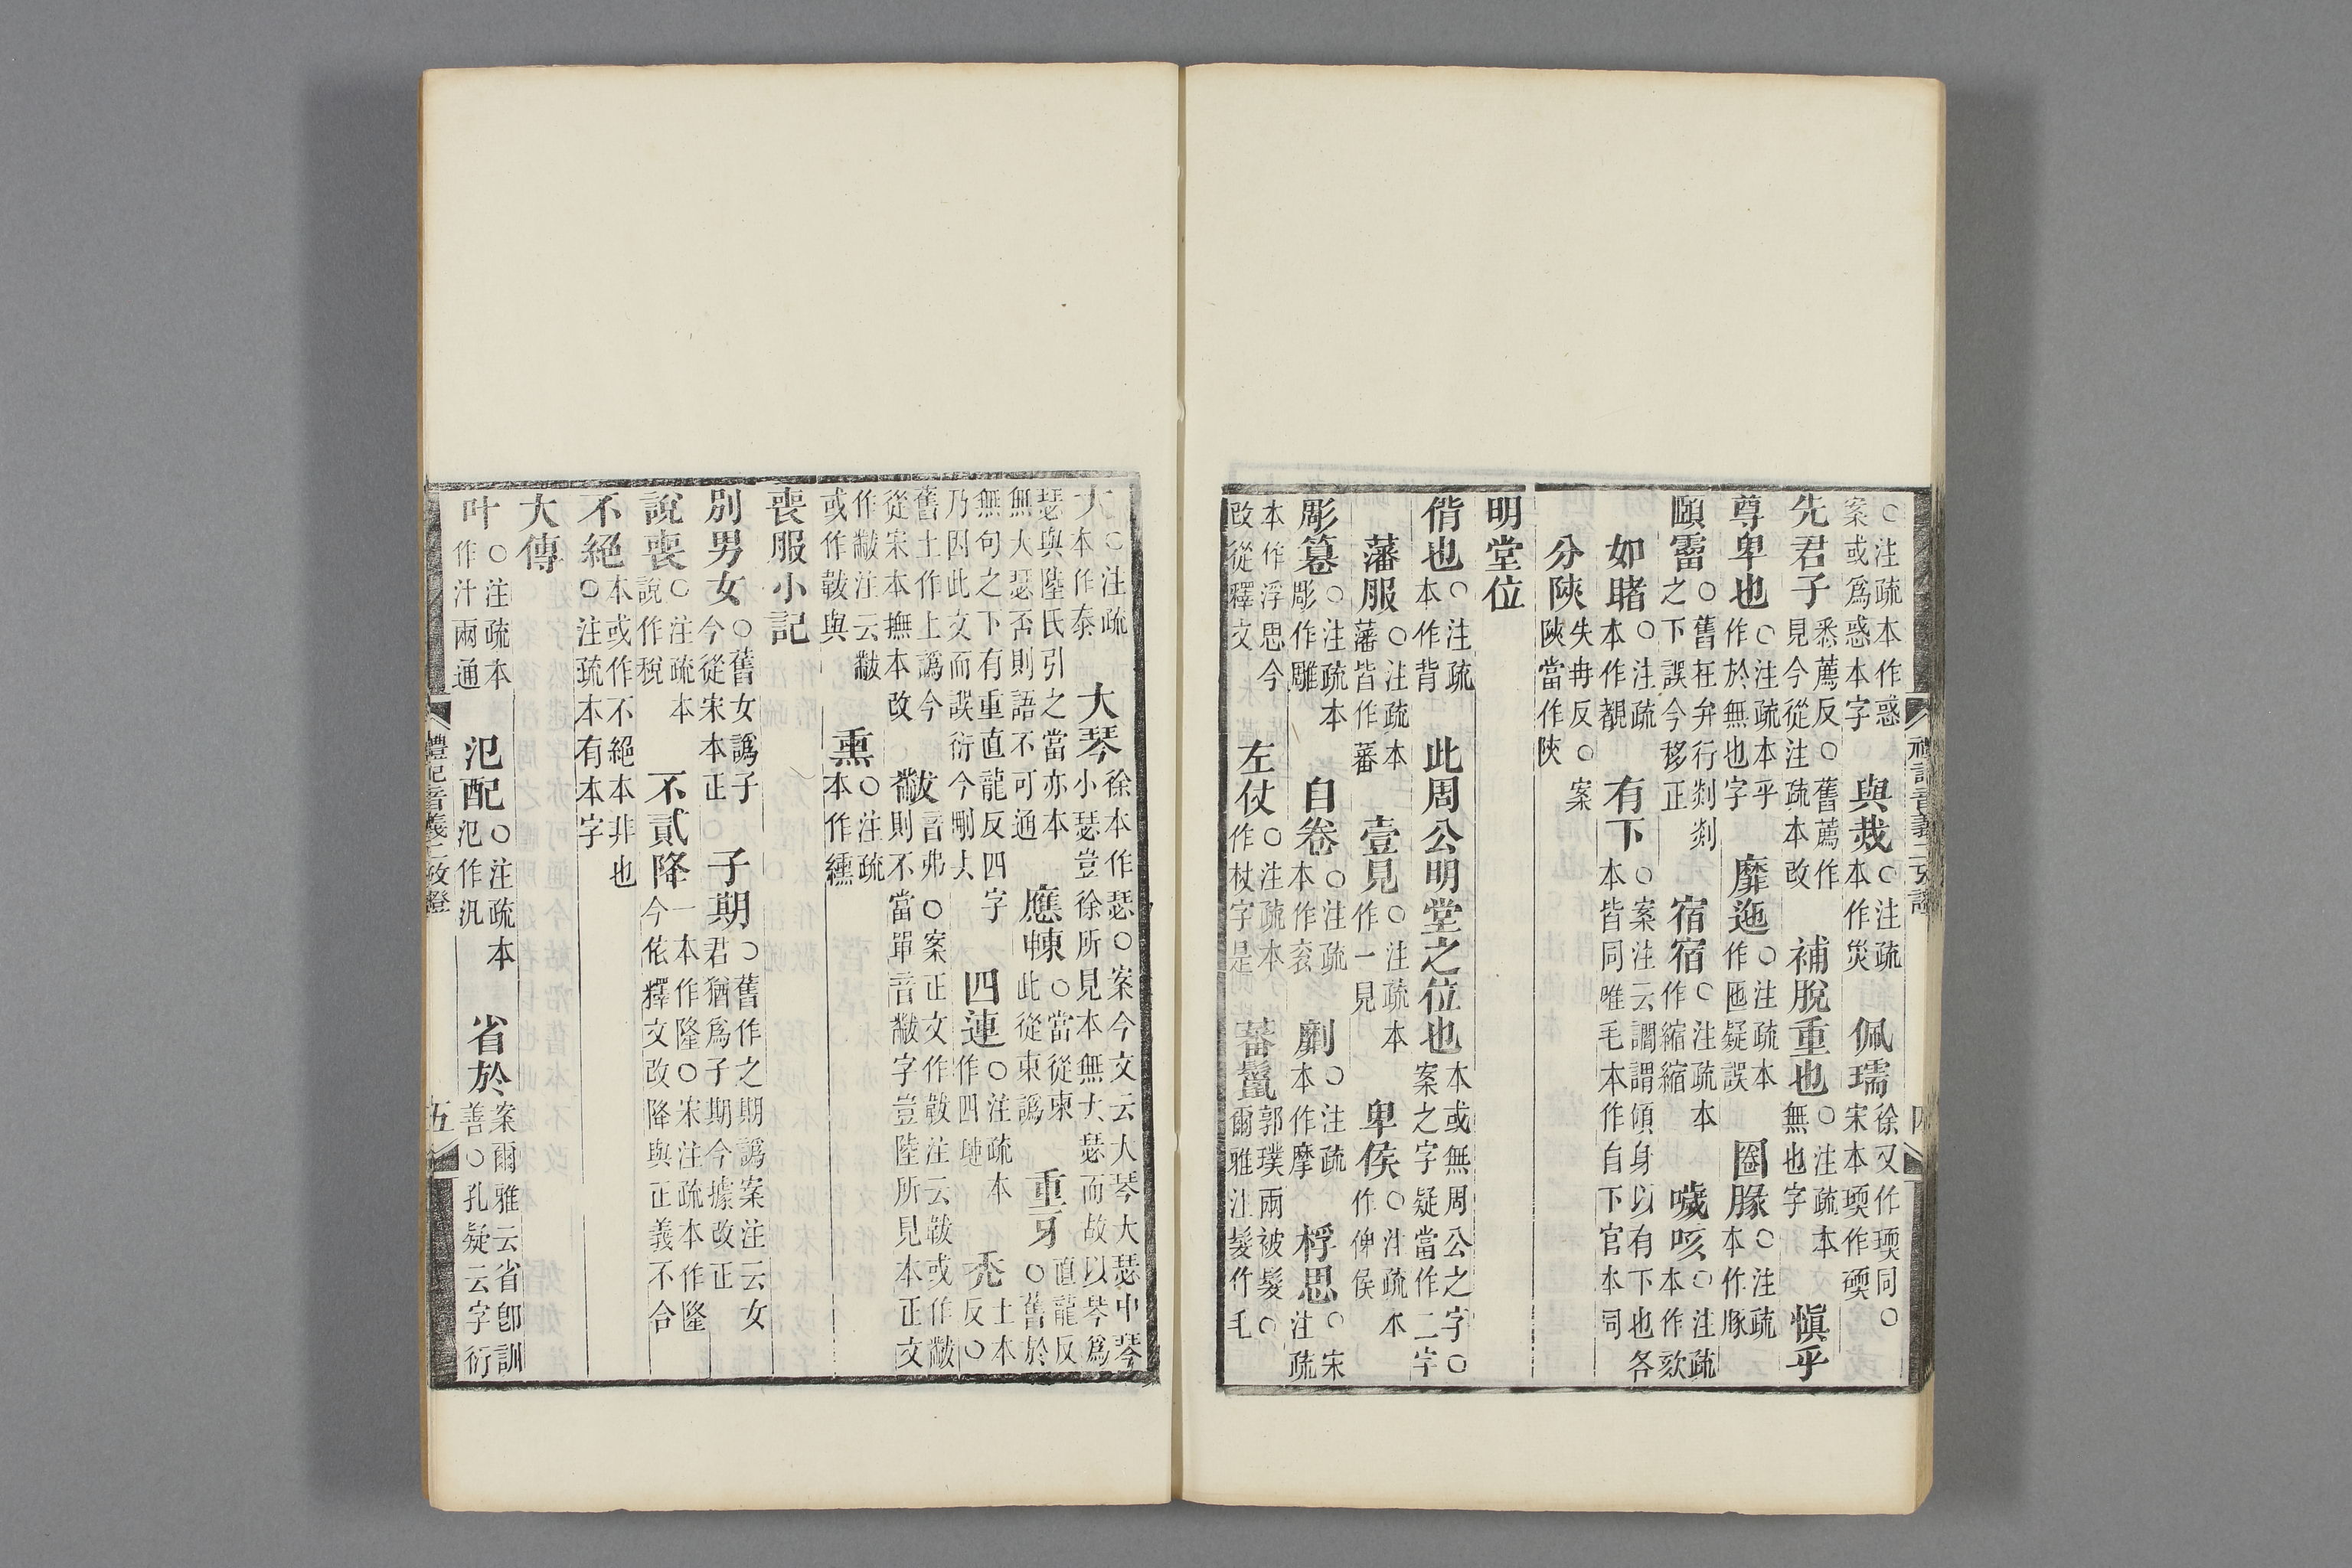 ○注疏本作惑案或爲惑本字　與烖○注疏本作災　佩瑌徐又作瑌同○宋本瓀作碝
先君子悉薦反○舊薦作見今從注疏本改　補脫重也○注疏本無也字　愼乎
尊卑也○注疏本乎作於無也字　靡迤○注疏本作匜疑誤　圈豚○注疏本作豚
頤霤○舊在弁行剡剡之下誤今移正　宿宿○注疏本作縮縮　噦咳○注疏本作欬
如睹○注疏本作覩　有下○案注云調謂傾身以有下也各本皆同唯毛本作自下官本同
分陝失冉反○案陝當作陜
明堂位
偝也○注疏本作背　此周公明堂之位也本或無周公之字○案之字疑當作二字
藩服○注疏本藩皆作蕃　壹見○注疏本作一見　卑侯○注疏本作俾侯
彫篹○注疏本彫作雕　自卷○注疏本作衮　劘○注疏本作摩　桴思○宋注疏
本作浮思今改從釋文　左仗○注疏本作杖字是　蕃鬣郭璞兩被髮○爾雅注髮作毛
大○注疏本作泰　大琴徐本作瑟○案今文云大琴大瑟中琴小瑟豈徐所見本無大瑟而故以琴爲
瑟與陸氏引之當亦本無大瑟否則語不可通　應朄○當從柬此從東譌　重牙直龍反○舊於
無句之下有重直龍反四字乃因此文而誤衍今刪去　四連○注疏本作四璉　禿土本反○
舊土作上譌今從宋本撫本改　韍音弗○案正文作韍注云韍或作黻黻則不當單音黻字豈陸所見本正文
作黻注云黻或作韍與　熏○注疏本作纁
喪服小記
別男女○舊女譌子今從宋本正　子期○舊作之期譌案注云女君猶爲子期今據改正
說喪○注疏本說作稅　不貳降一本作隆○宋注疏本作隆今依釋文改降與正義不合
不絕本或作不絕本非也○注疏本有本字
大傳
叶○注疏本作汁兩通　氾配○注疏本氾作汎　省於案爾雅云省卽訓善○孔疑云字衍
禮記音義二攷證
五